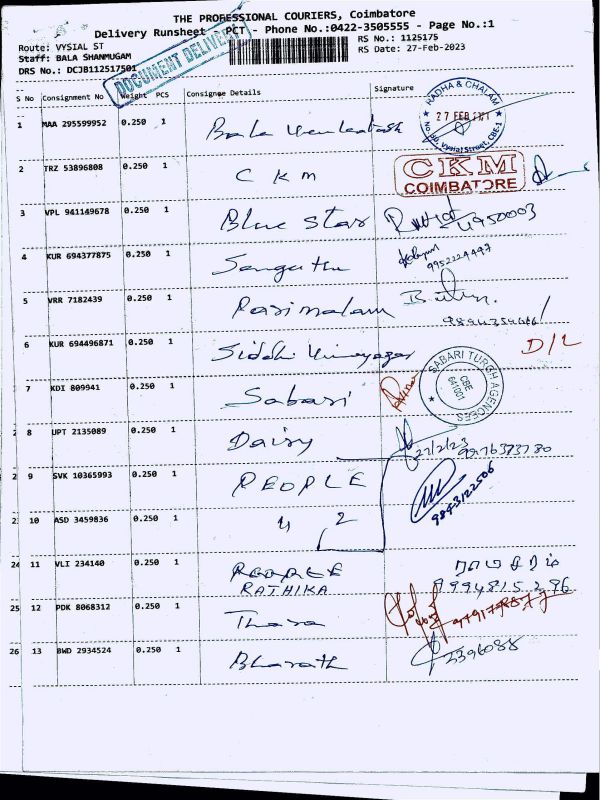 THE PROFESSIONAL COURIERS, Coimbatore
Delivery Runsheet - PCT - Phone No.:0422-3505555 - Page No.:1
Route: VYSIAL ST
RS No.: 1125175
Staff: BALA SHANMUGAM
RS Date: 27-Feb-2023
DRS No.: DCJB112517501
DOCUMENT DELIVERY
S No Consignment No Weight PCS Consignee Details Signature
RADHA & CHALAM
27 FEB
Vysial Street, CBE-1
1 MAA 295599952 0.250 1 Bala Venkatesh
2 TRZ 53896808 0.250 1 C K M
CKM
COIMBATORE
3 VPL 941149678 0.250 1 Blue Star
4 KUR 694377875 0.250 1
9952224497
5 VRR 7182439 0.250 1 Parimalam
6 KUR 694496871 0.250 1 Siddhi Vinayagar D/L
SABARI TURGH AGENCEES
CBE
641001
7 KDI 809941 0.250 1 Sabari
2 8 UPT 2135089 0.250 1 Dairy 27/2/23
2 9 SVK 10365993 0.250 1 PEOPLE
9843122506
2 10 ASD 3459836 0.250 1 2
24 11 VLI 234140 0.250 1 PEOPLE
RATHIKA 9994815296
25 12 PDK 8068312 0.250 1 Thara
26 13 BWD 2934524 0.250 1 Bharath 2396088